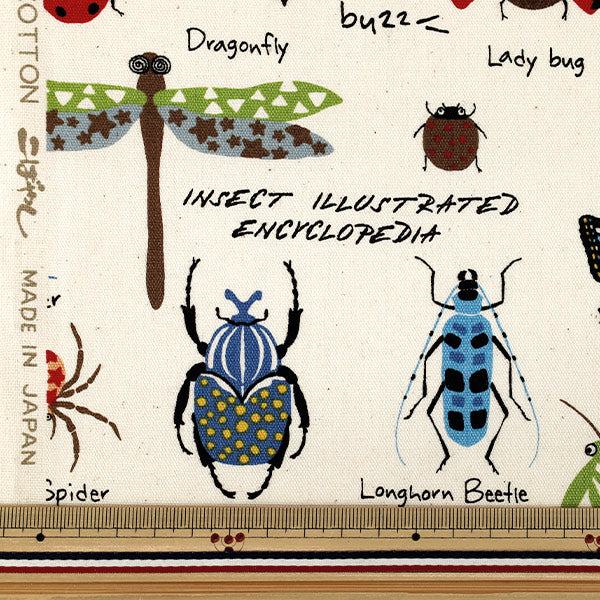 buzz
Dragonfly
Lady bug
INSECT ILLUSTRATED
ENCYCLOPEDIA
Spider
Longhorn Beetle
COTTON
MADE IN JAPAN